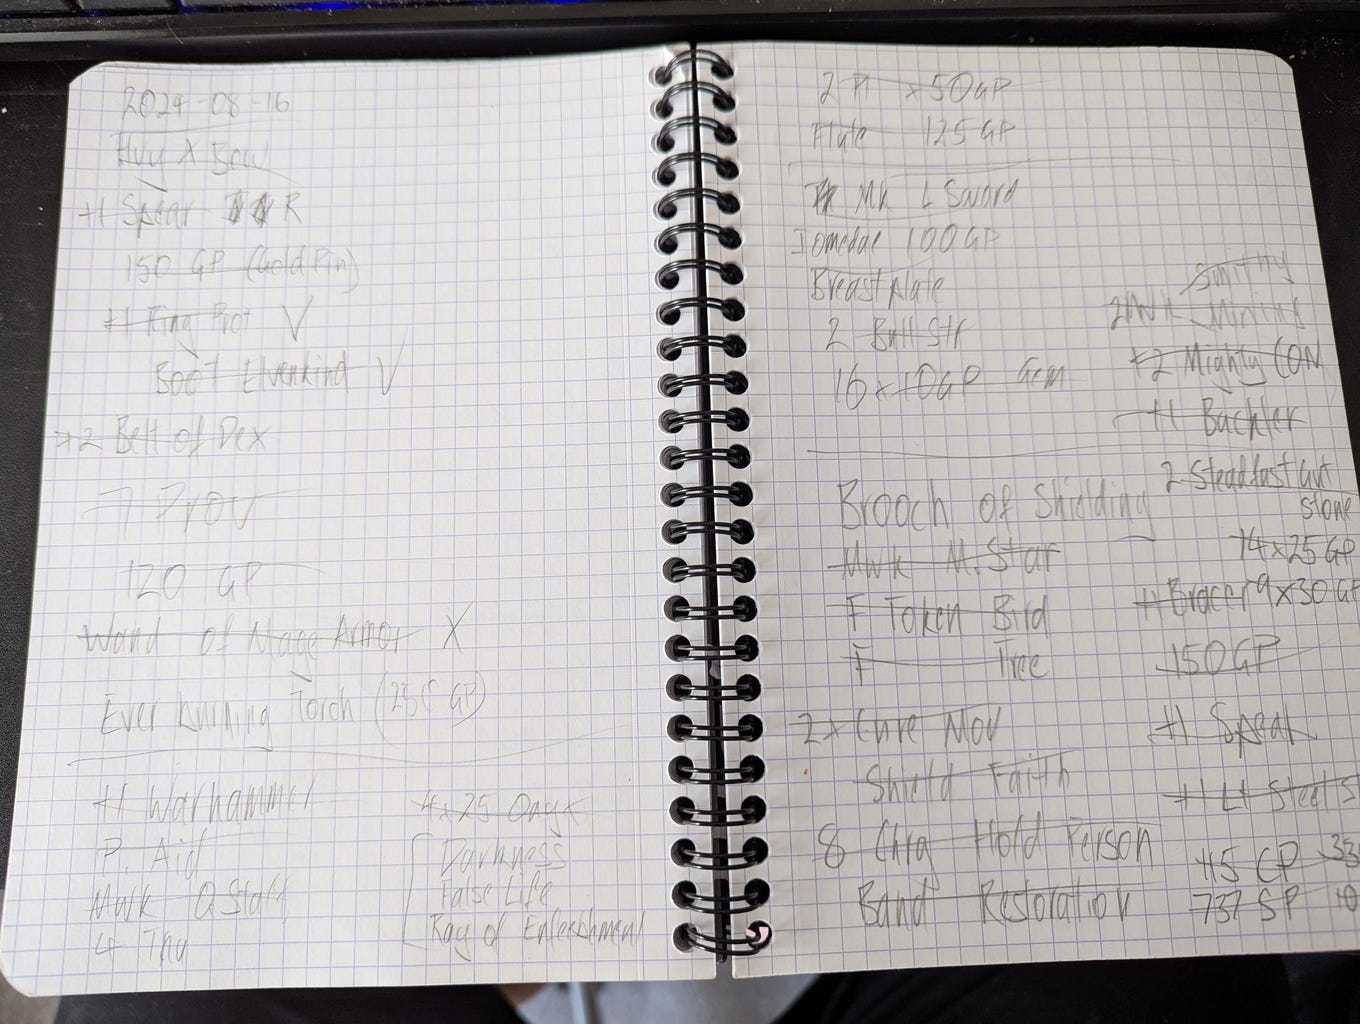 2024-08-16
Hvy X Bow
+1 Spear R
150 GP (Gold Pin)
+1 Ring Prot V
Boot Elvenkind V
+2 Belt of Dex
7 Prov
120 GP
Wand of Mage Armor X
Ever burning Torch (25 GP)
+1 Warhammer
P. Aid
Mwk Q Staff
4 Thu
4x25 Onyx
Darkness
False Life
Ray of Enfeeblement
2 Pl x50GP
Flute 125 GP
Mk L Sword
Iomedae 100GP
Breastplate
2 Bull Str
16x10GP Gem
Smithy
2 Mwk Mining
+2 Mighty CON
+1 Buckler
Brooch of Shielding
Mwk M. Star
F Token Bird
F Tree
2x Cure Mod
Shield Faith
8 Chrg Hold Person
Band Restoration
2 Steadfast Gut
stone
14x25 GP
+1 Bracer 9x30 GP
150GP
+1 Spear
+1 Lt Steel S
45 CP
737 SP